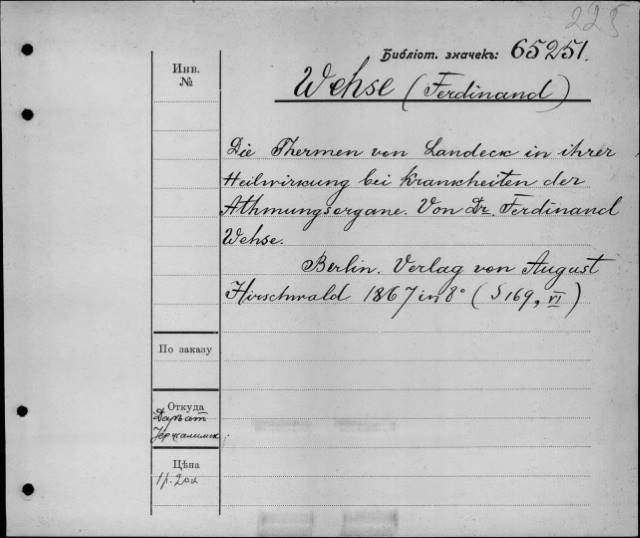 225
Библіот. значекъ: 65251.
Инв.
№
Wehse (Ferdinand)
Die Thermen von Landeck in ihrer
Heilwirkung bei Krankheiten der
Athmungsorgane. Von Dr. Ferdinand
Wehse.
Berlin. Verlag von August
Hirschwald 1867 in 8° (S 169, VI)
По заказу
Откуда
Цѣна
1 р. 20 к